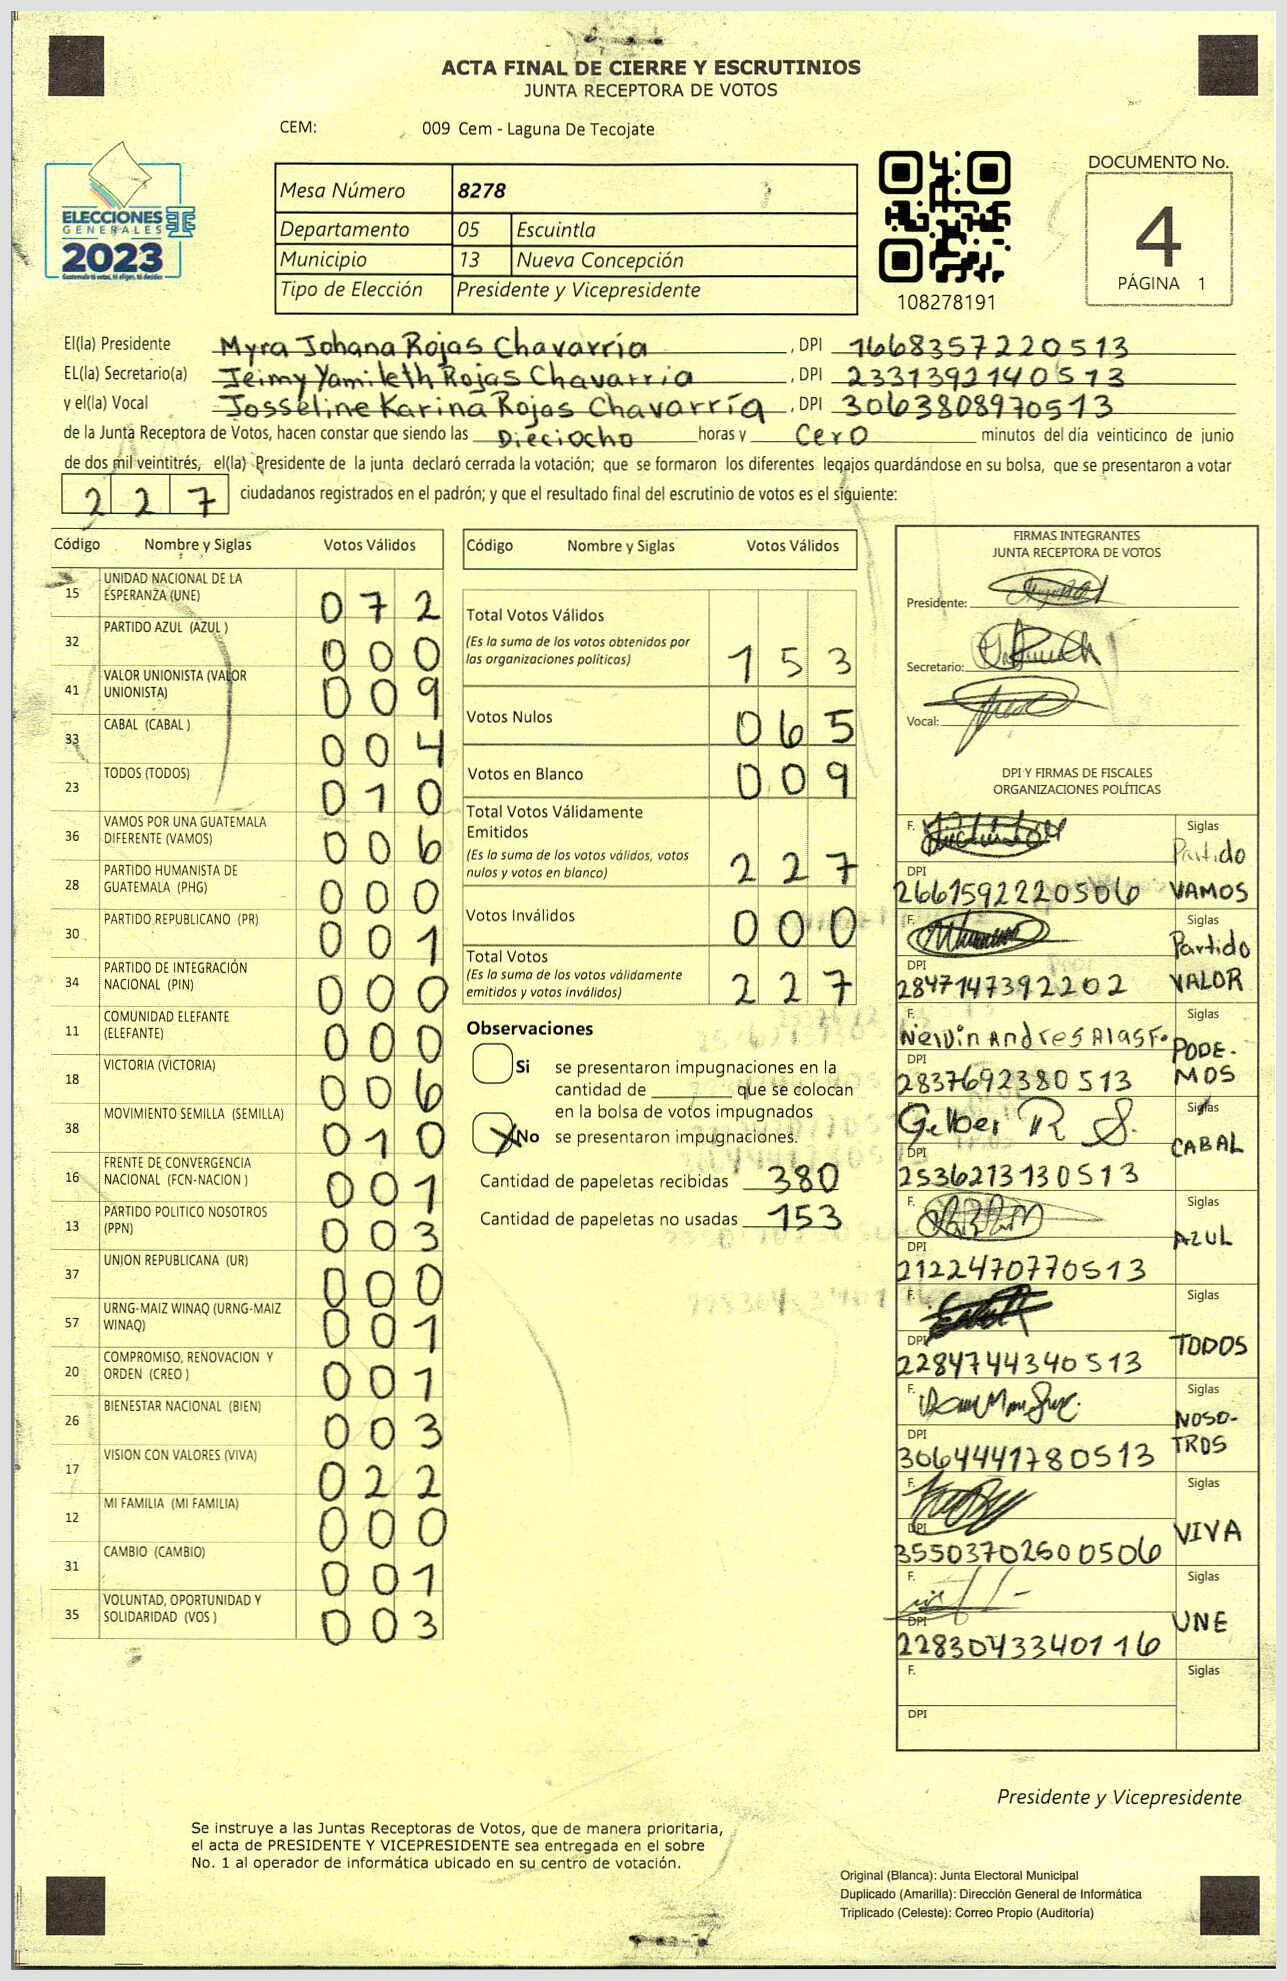 ACTA FINAL DE CIERRE Y ESCRUTINIOS
JUNTA RECEPTORA DE VOTOS
CEM: 009 Cem - Laguna De Tecojate
ELECCIONES
GENERALES
2023
Guatemala tú votas, tú eliges, tú decides
Mesa Número 8278
Departamento 05 Escuintla
Municipio 13 Nueva Concepción
Tipo de Elección Presidente y Vicepresidente
108278191
DOCUMENTO No.
4
PÁGINA 1
El(la) Presidente Myra Johana Rojas Chavarría, DPI 1668357220513
EL(la) Secretario(a) Jeimy Yamileth Rojas Chavarria, DPI 2331392140513
y el(la) Vocal Josseline Karina Rojas Chavarría, DPI 3063808970513
de la Junta Receptora de Votos, hacen constar que siendo las Dieciocho horas y Cero minutos del día veinticinco de junio
de dos mil veintitrés, el(la) Presidente de la junta declaró cerrada la votación; que se formaron los diferentes legajos guardándose en su bolsa, que se presentaron a votar
227 ciudadanos registrados en el padrón; y que el resultado final del escrutinio de votos es el siguiente:
Código Nombre y Siglas Votos Válidos
15 UNIDAD NACIONAL DE LA ESPERANZA (UNE) 072
32 PARTIDO AZUL (AZUL ) 000
41 VALOR UNIONISTA (VALOR UNIONISTA) 009
33 CABAL (CABAL ) 004
23 TODOS (TODOS) 010
36 VAMOS POR UNA GUATEMALA DIFERENTE (VAMOS) 006
28 PARTIDO HUMANISTA DE GUATEMALA (PHG) 000
30 PARTIDO REPUBLICANO (PR) 001
34 PARTIDO DE INTEGRACIÓN NACIONAL (PIN) 000
11 COMUNIDAD ELEFANTE (ELEFANTE) 000
18 VICTORIA (VICTORIA) 006
38 MOVIMIENTO SEMILLA (SEMILLA) 010
16 FRENTE DE CONVERGENCIA NACIONAL (FCN-NACION ) 001
13 PARTIDO POLITICO NOSOTROS (PPN) 003
37 UNION REPUBLICANA (UR) 000
57 URNG-MAIZ WINAQ (URNG-MAIZ WINAQ) 001
20 COMPROMISO, RENOVACION Y ORDEN (CREO ) 001
26 BIENESTAR NACIONAL (BIEN) 003
17 VISION CON VALORES (VIVA) 022
12 MI FAMILIA (MI FAMILIA) 000
31 CAMBIO (CAMBIO) 001
35 VOLUNTAD, OPORTUNIDAD Y SOLIDARIDAD (VOS ) 003
Código Nombre y Siglas Votos Válidos
Total Votos Válidos
(Es la suma de los votos obtenidos por
las organizaciones políticas) 153
Votos Nulos 065
Votos en Blanco 009
Total Votos Válidamente
Emitidos
(Es la suma de los votos válidos, votos
nulos y votos en blanco) 227
Votos Inválidos 000
Total Votos
(Es la suma de los votos válidamente
emitidos y votos inválidos) 227
Observaciones
Si se presentaron impugnaciones en la
cantidad de ________ que se colocan
en la bolsa de votos impugnados
X No se presentaron impugnaciones.
Cantidad de papeletas recibidas 380
Cantidad de papeletas no usadas 153
FIRMAS INTEGRANTES
JUNTA RECEPTORA DE VOTOS
Presidente:
Secretario:
Vocal:
DPI Y FIRMAS DE FISCALES
ORGANIZACIONES POLÍTICAS
F. Siglas Partido
DPI 2661592220506 VAMOS
F. Siglas Partido
DPI 2847147392202 VALOR
F. Nelvin Andres Alas F. Siglas PODE-
DPI 2837692380513 MOS
F. Gelber R S. Siglas
DPI 2536213130513 CABAL
F. Siglas
DPI 2122470770513 AZUL
F. Siglas
DPI 2284744340513 TODOS
F. Siglas NOSO-
DPI 3064441780513 TROS
F. Siglas
DPI 35503702600506 VIVA
F. Siglas
DPI 2283043340116 UNE
F. Siglas
DPI
Presidente y Vicepresidente
Se instruye a las Juntas Receptoras de Votos, que de manera prioritaria,
el acta de PRESIDENTE Y VICEPRESIDENTE sea entregada en el sobre
No. 1 al operador de informática ubicado en su centro de votación.
Original (Blanca): Junta Electoral Municipal
Duplicado (Amarilla): Dirección General de Informática
Triplicado (Celeste): Correo Propio (Auditoría)